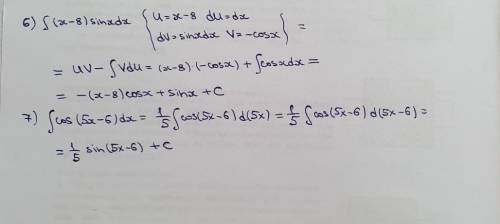 6) ∫(x-8)sinxdx {U=x-8 dU=dx
dV=sinxdx V=-cosx} =
= UV-∫Vdu= (x-8)·(-cosx)+∫cosxdx=
= -(x-8)cosx+sinx+C
7) ∫cos(5x-6)dx= 1/5∫cos(5x-6)d(5x)= 1/5∫cos(5x-6)d(5x-6)=
= 1/5 sin(5x-6)+C